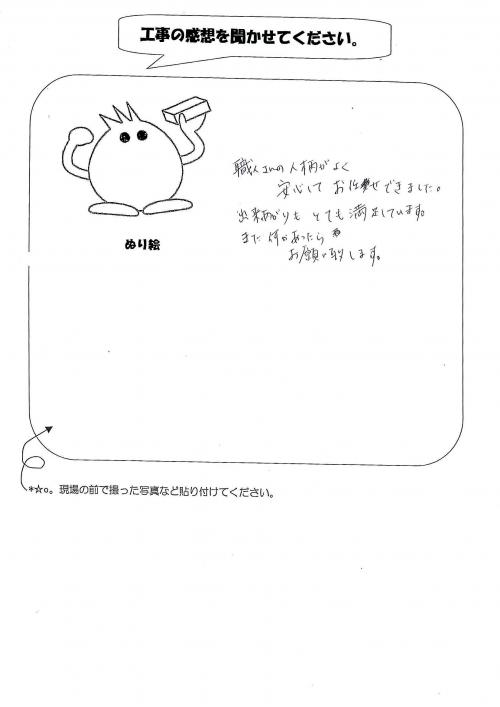 工事の感想を聞かせてください。
職人さんの人柄がよく
安心して お任せできました。
出来上がりも とても 満足しています。
また 何かあったら
お願い致します。
ぬり絵
*☆o。現場の前で撮った写真など貼り付けてください。